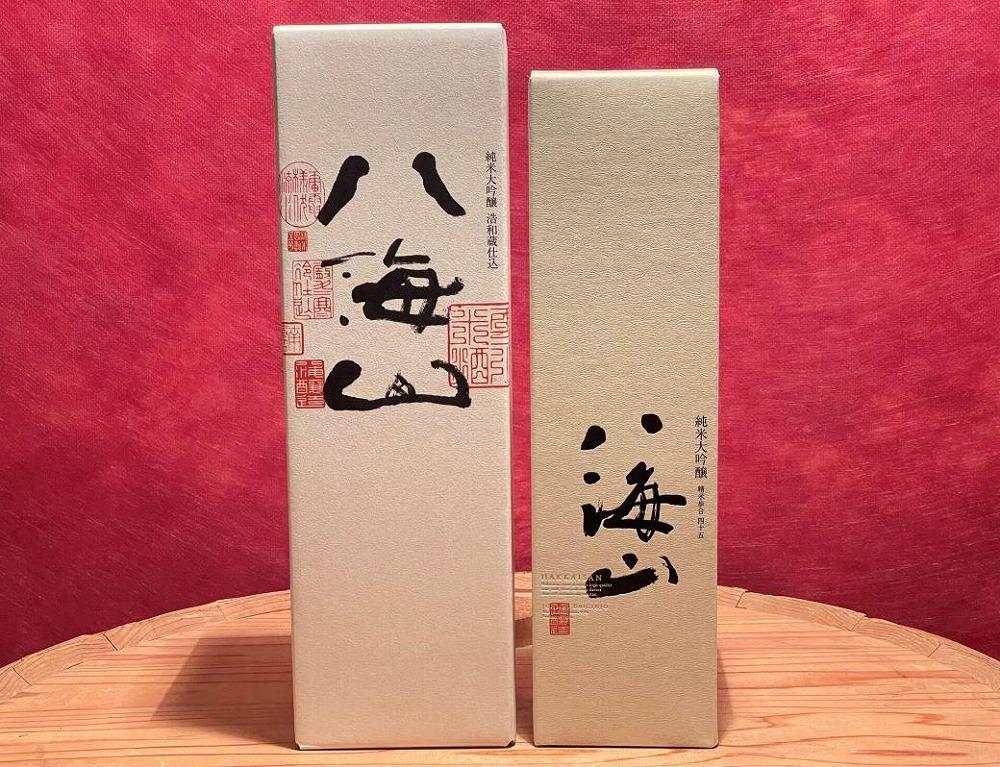 純米大吟醸 浩和蔵仕込
八海山
純米大吟醸 精米歩合 四十五
八海山
HAKKAISAN